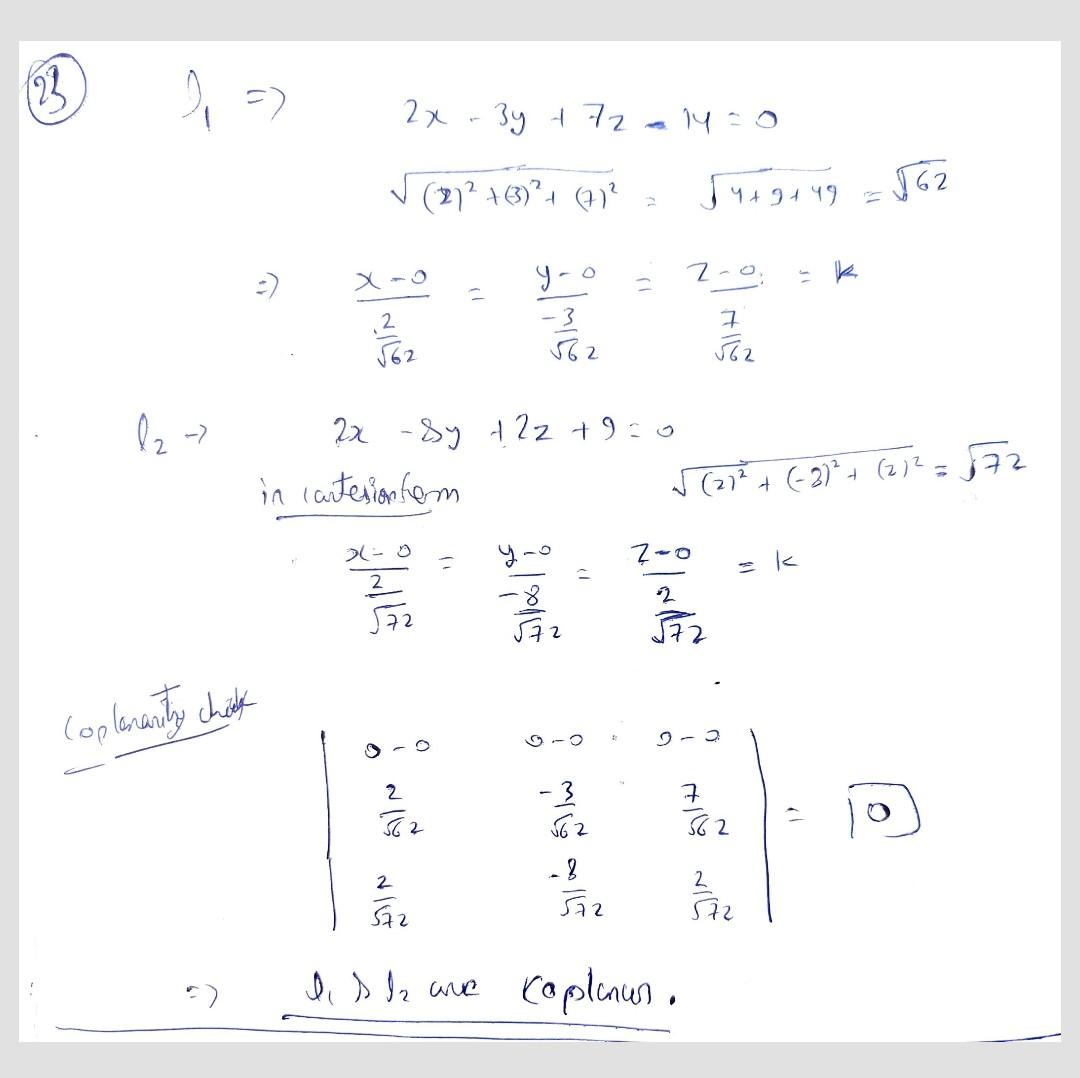 23
l₁ => 2x - 3y + 7z - 14 = 0
√(2)² + (3)² + (7)² = √4+9+49 = √62
=> x-0 / (2/√62) = y-0 / (-3/√62) = z-0 / (7/√62) = k
l₂ -> 2x - 8y + 2z + 9 = 0
in cartesion form √(2)² + (-8)² + (2)² = √72
x-0 / (2/√72) = y-0 / (-8/√72) = z-0 / (2/√72) = k
Coplanarity check
| 0-0 0-0 0-0 |
| 2/√62 -3/√62 7/√62 | = 0
| 2/√72 -8/√72 2/√72 |
=> l₁ & l₂ are coplanar.